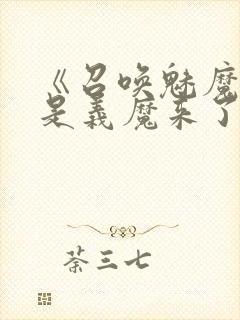 《召唤魅魔
是义魔来了
荼三七